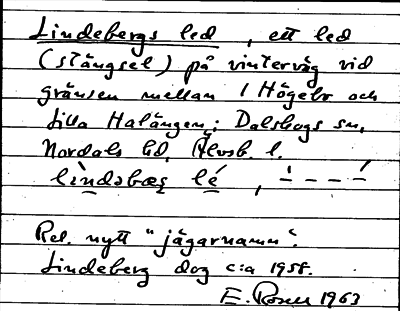 Lindebergs led, ett led
(stängsel) på vinterväg vid
gränsen mellan 1 Högebo och
Lilla Halängen; Dalskogs sn,
Nordals hd, Älvsb. l.
lìndəbæȿ lé, – – – –
Rel. nytt "jägarnamn".
Lindeberg dog c:a 1958.
E. Rosen 1963